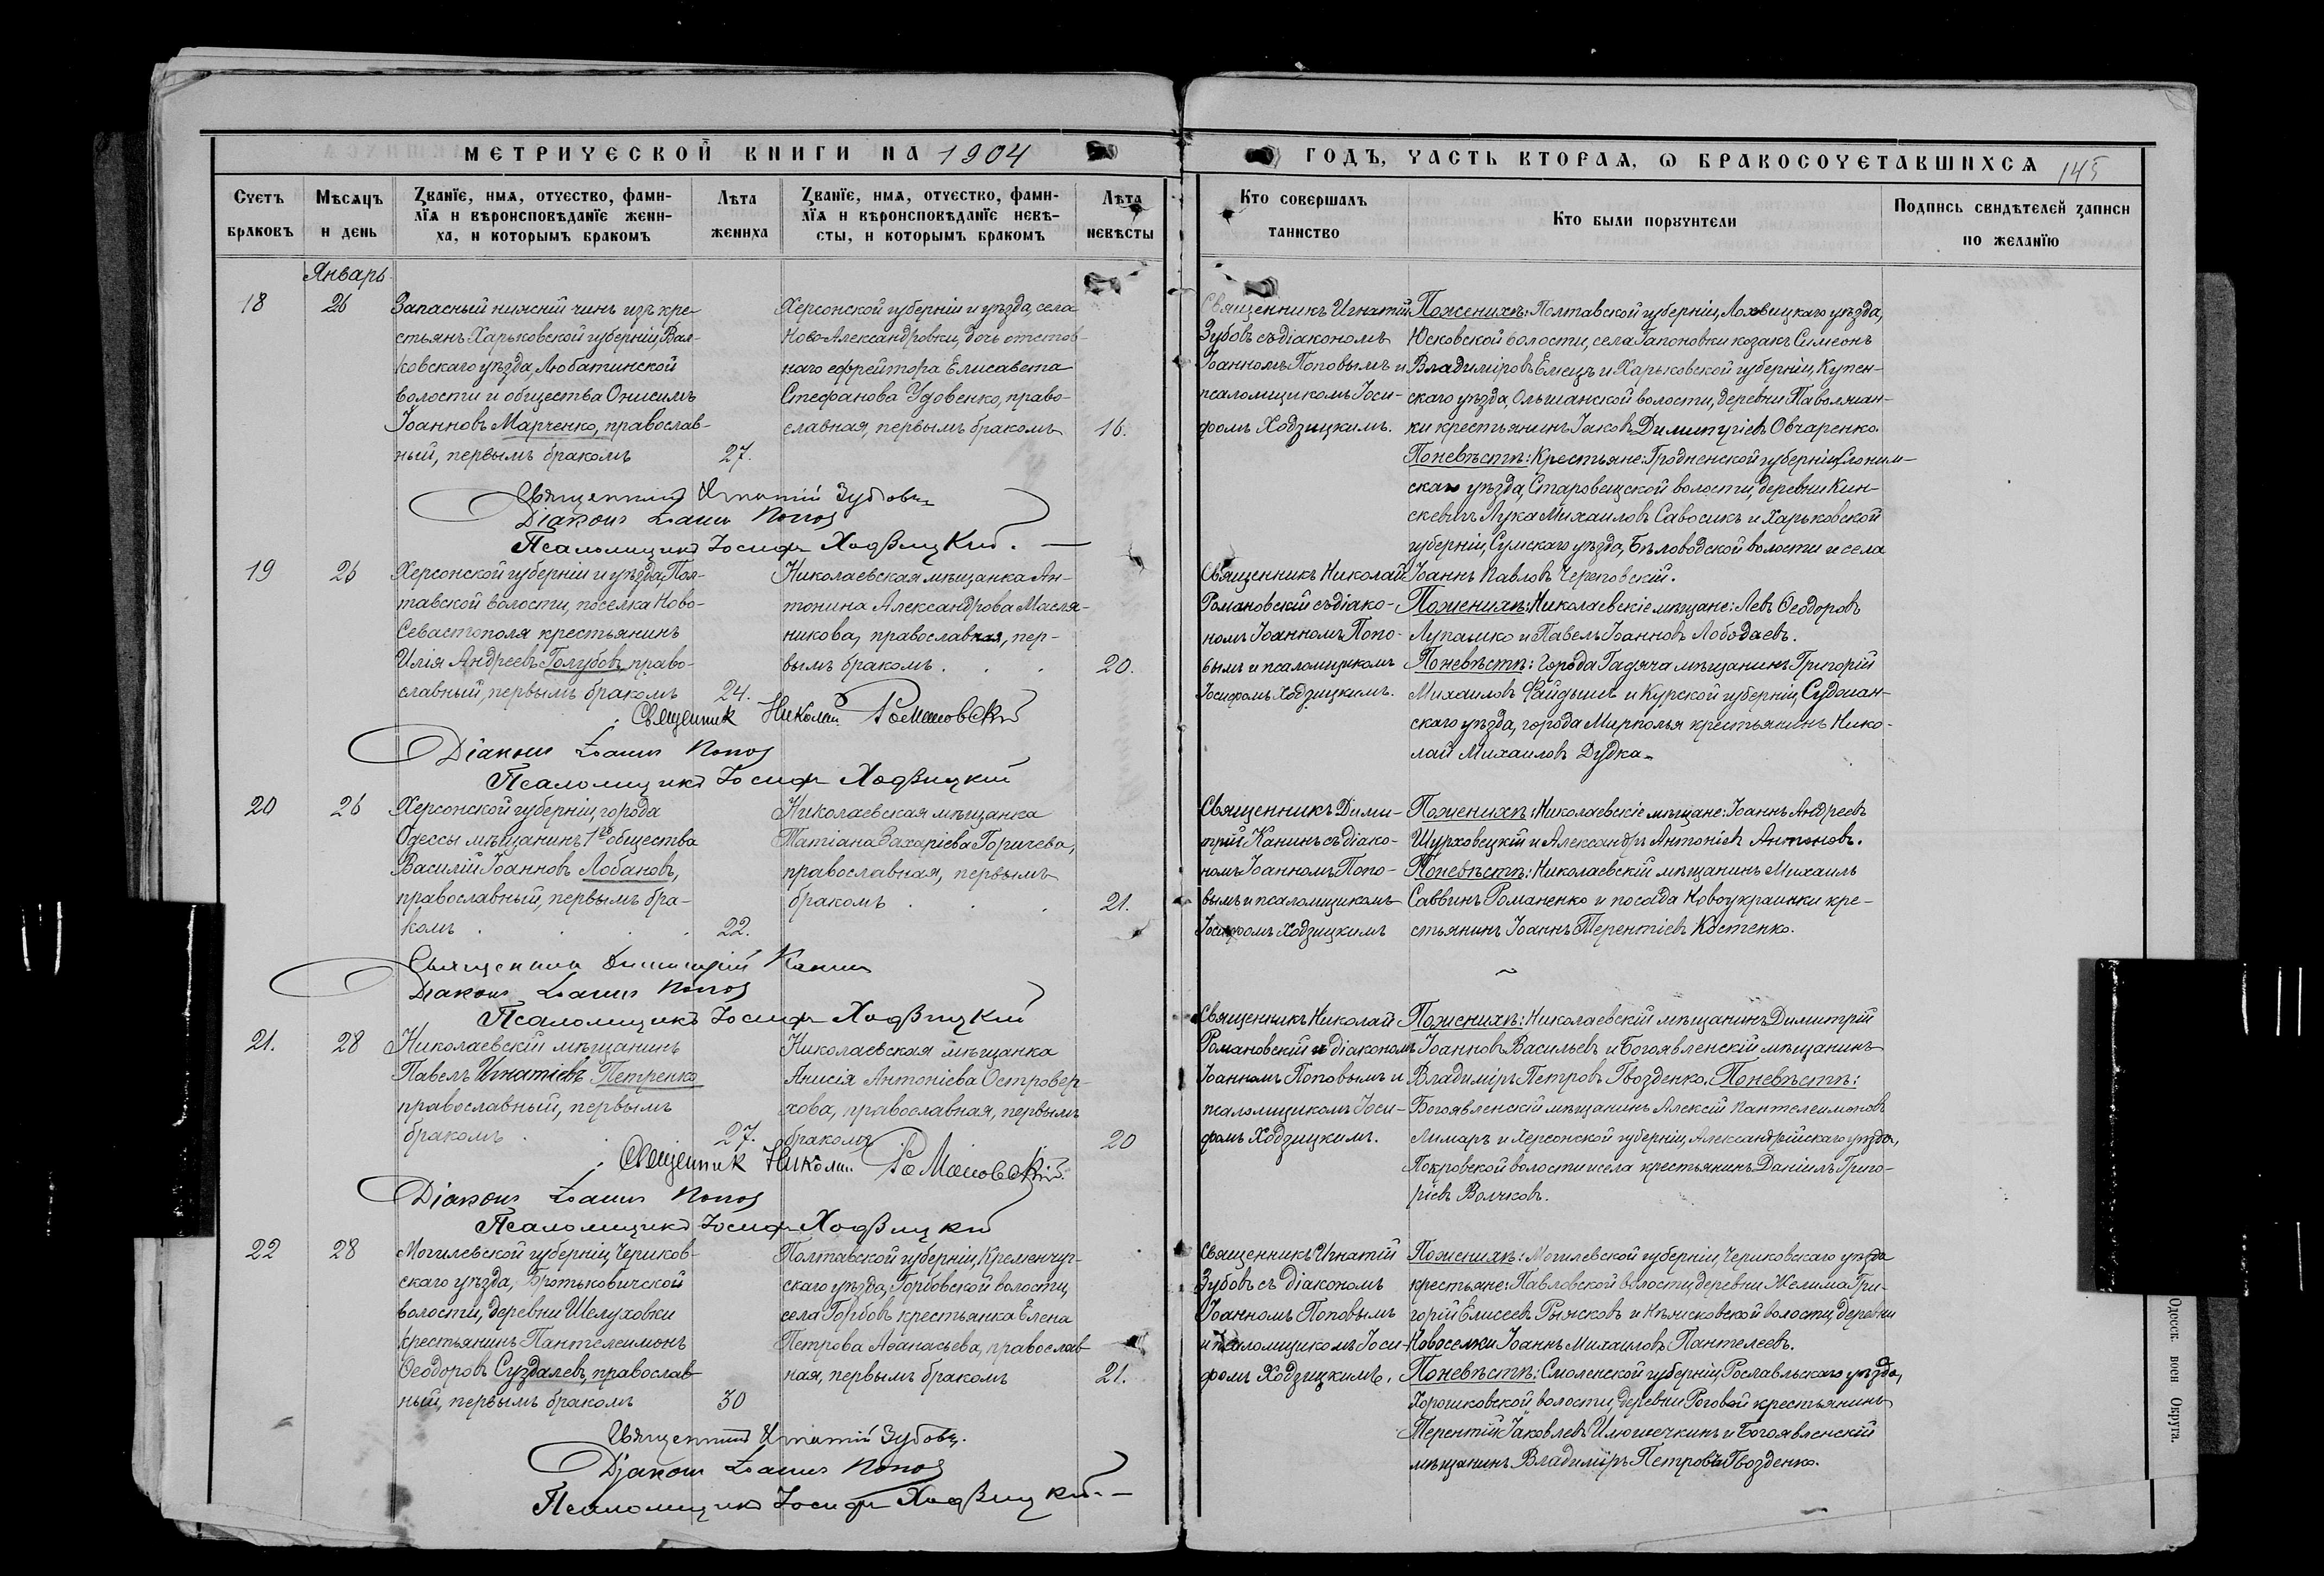 МЕТРИЧЕСКОЙ КНИГИ НА 1904
ГОДЪ, ЧАСТЬ ВТОРАЯ, Ѡ БРАКОСОЧЕТАВШИХСЯ 145
Счетъ браковъ
Мѣсяцъ и день
Званїе, имя, отчество, фами-
лїя и вѣроисповѣданїе жени-
ха, и которымъ бракомъ
Лѣта жениха
Званїе, имя, отчество, фами-
лїя и вѣроисповѣданїе невѣ-
сты, и которымъ бракомъ
Лѣта невѣсты
Кто совершалъ таинство
Кто были порꙋчители
Подпись свидѣтелей записи по желанїю
Январь
18
26
Запасный нижній чинъ изъ кре-
стьянъ Харьковской губерніи, Вал-
ковскаго уѣзда, Люботинской
волости и общества Онисимъ
Іоанновъ Марченко, православ-
ный, первымъ бракомъ
27.
Херсонской губерніи и уѣзда, села
Ново-Александровки, дочь отстав-
наго ефрейтора Елисавета
Стефанова Удовенко, право-
славная, первымъ бракомъ
16.
Священникъ Игнатій
Зубовъ съ діакономъ
Іоанномъ Поповымъ и
псаломщикомъ Іоси-
фомъ Ходзицкимъ.
По женихѣ: Полтавской губерніи, Лохвицкаго уѣзда,
Юсковской волости, села Гапоновки козакъ Симеонъ
Владиміровъ Емецъ и Харьковской губерніи, Купен-
скаго уѣзда, Ольшанской волости, деревни Таволжан-
ки крестьянинъ Іаковъ Димитріевъ Овчаренко.
По невѣстѣ: Крестьяне: Гродненской губерніи, Слоним-
скаго уѣзда, Старовещской волости, деревни Кин-
скевичъ Лука Михаиловъ Савосикъ и Харьковской
губерніи, Сумскаго уѣзда, Бѣловодской волости и села
Іоаннъ Павловъ Череповскій.
Священникъ Игнатій Зубовъ
Діаконъ Іоаннъ Поповъ
Псаломщикъ Іосифъ Ходзицкій.
19
26
Херсонской губерніи и уѣзда, Пол-
тавской волости, поселка Ново-
Севастополя крестьянинъ
Илія Андреевъ Голубовъ, право-
славный, первымъ бракомъ
24.
Николаевская мѣщанка Ан-
тонина Александрова Масля-
никова, православная, пер-
вымъ бракомъ . . .
20.
Священникъ Николай
Романовскій съ діако-
номъ Іоанномъ Попо-
вымъ и псаломщикомъ
Іосифомъ Ходзицкимъ.
По женихѣ: Николаевскіе мѣщане: Левъ Ѳеодоровъ
Лупашко и Павелъ Іоанновъ Лободаевъ.
По невѣстѣ: Города Гадяча мѣщанинъ Григорій
Михаиловъ Файдышъ и Курской губерніи, Суджан-
скаго уѣзда, города Мирополья крестьянинъ Нико-
лай Михаиловъ Дудка.
Священник Николай Романовскій
Діаконъ Іоаннъ Поповъ
Псаломщикъ Іосифъ Ходзицкій
20
26
Херсонской губерніи, города
Одессы мѣщанинъ 1го общества
Василій Іоанновъ Лобановъ,
православный, первымъ бра-
комъ . . . .
22.
Николаевская мѣщанка
Татіана Захаріева Горичева,
православная, первымъ
бракомъ . . .
21.
Священникъ Дими-
трій Канинъ съ діако-
номъ Іоанномъ Попо-
вымъ и псаломщикомъ
Іосифомъ Ходзицкимъ
По женихѣ: Николаевскіе мѣщане: Іоаннъ Андреевъ
Шурховецкій и Александръ Антоніевъ Антоновъ.
По невѣстѣ: Николаевскій мѣщанинъ Михаилъ
Саввинъ Романенко и посада Новоукраинки кре-
стьянинъ Іоаннъ Терентіевъ Костенко.
Священникъ Димитрій Канинъ
Діаконъ Іоаннъ Поповъ
Псаломщикъ Іосифъ Ходзицкій
21.
28
Николаевскій мѣщанинъ
Павелъ Игнатіевъ Петренко
православный, первымъ
бракомъ . .
27.
Николаевская мѣщанка
Анисія Антоніева Островер-
хова, православная, первымъ
бракомъ
20
Священникъ Николай
Романовскій съ діакономъ
Іоанномъ Поповымъ и
псаломщикомъ Іоси-
фомъ Ходзицкимъ.
По женихѣ: Николаевскій мѣщанинъ Димитрій
Іоанновъ Васильевъ и Богоявленскій мѣщанинъ
Владиміръ Петровъ Гвозденко. По невѣстѣ:
Богоявленскій мѣщанинъ Алексій Пантелеимоновъ
Лимаръ и Херсонской губерніи, Александрійскаго уѣзда,
Покровской волости и села крестьянинъ Даніилъ Григо-
ріевъ Волчковъ.
Священник Николай Романовскій.
Діаконъ Іоаннъ Поповъ
Псаломщикъ Іосифъ Ходзицкій
22
28
Могилевской губерніи, Чериков-
скаго уѣзда, Бротьковичской
волости, деревни Шелуховки
крестьянинъ Пантелеимонъ
Ѳеодоровъ Суздалевъ, православ-
ный, первымъ бракомъ
30
Полтавской губерніи, Кременчуг-
скаго уѣзда, Горбовской волости,
села Горбовъ крестьянка Елена
Петрова Аѳанасьева, православ-
ная, первымъ бракомъ
21.
Священникъ Игнатій
Зубовъ съ діакономъ
Іоанномъ Поповымъ
и псаломщикомъ Іоси-
фомъ Ходзицкимъ.
По женихѣ: Могилевской губерніи, Чериковскаго уѣзда
крестьяне: Павловской волости, деревни Желима Гри-
горій Елисеевъ Рыжсковъ и волости, деревни
Новоселки Іоаннъ Михаиловъ Пантелеевъ.
По невѣстѣ: Смоленской губерніи, Рославльскаго уѣзда,
Хорошковской волости, деревни Роговой крестьянинъ
Терентій Іаковлевъ Илюшечкинъ и Богоявленскій
мѣщанинъ Владиміръ Петровъ Гвозденко.
Священникъ Игнатій Зубовъ.
Діаконъ Іоаннъ Поповъ
Псаломщикъ Іосифъ Ходзицкій.
Одесск. воен Округа.